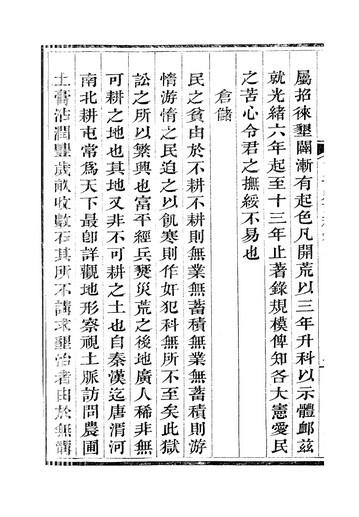 屬招徠墾闢漸有起色凡開荒以三年升科以示體卹茲
就光緒六年起至十三年止著錄規模俾知各大憲愛民
之苦心令君之撫綏不易也
倉儲
民之貧由於不耕不耕則無業無蓄積無業無蓄積則游
惰游惰之民迫之以飢寒則作奸犯科無所不至矣此獄
訟之所以繁興也富平經兵燹災荒之後地廣人稀非無
可耕之地也其地又非不可耕之土也自秦漢迄唐渭河
南北耕屯常爲天下最卽詳觀地形察視土脈訪問農圃
土膏沾潤豐歲畝收數石其所不講求墾治者由於無